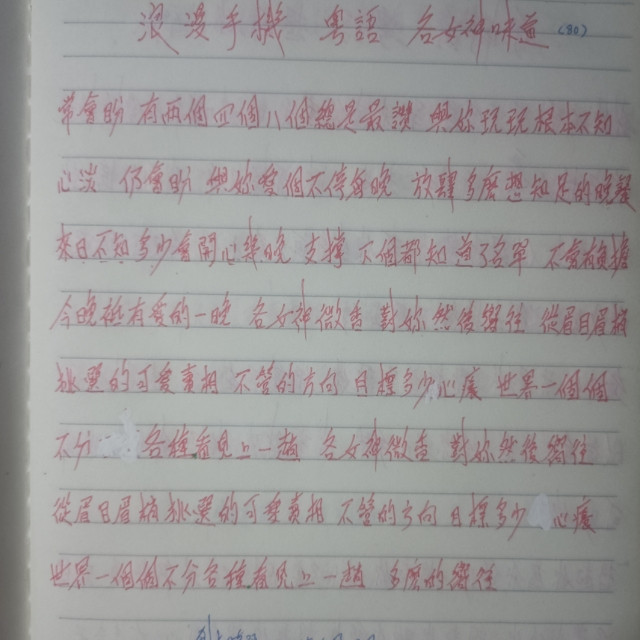 浪漫手機 粵語 各女神味道 (80)
常會盼 有兩個四個八個總是最讚 與你玩玩根本不知
心淡 仍會盼 與妳愛個不停每晚 放肆多麼想知足的晚餐
來日不知多少會開心幾晚 支撐 下個都知道了名單 不會
今晚 有愛的一晚 各女神微香 對妳然後嚮往 從眉目眉
挑選的可愛真相 不管的方向 目標多少心癢 世界一個個
不分 各種看見上一趟 各女神微香 對妳然後嚮往
從眉目眉 挑選的可愛真相 不管的方向 目標多少 心癢
世界一個個不分各種看見上一趟 多麼的嚮往